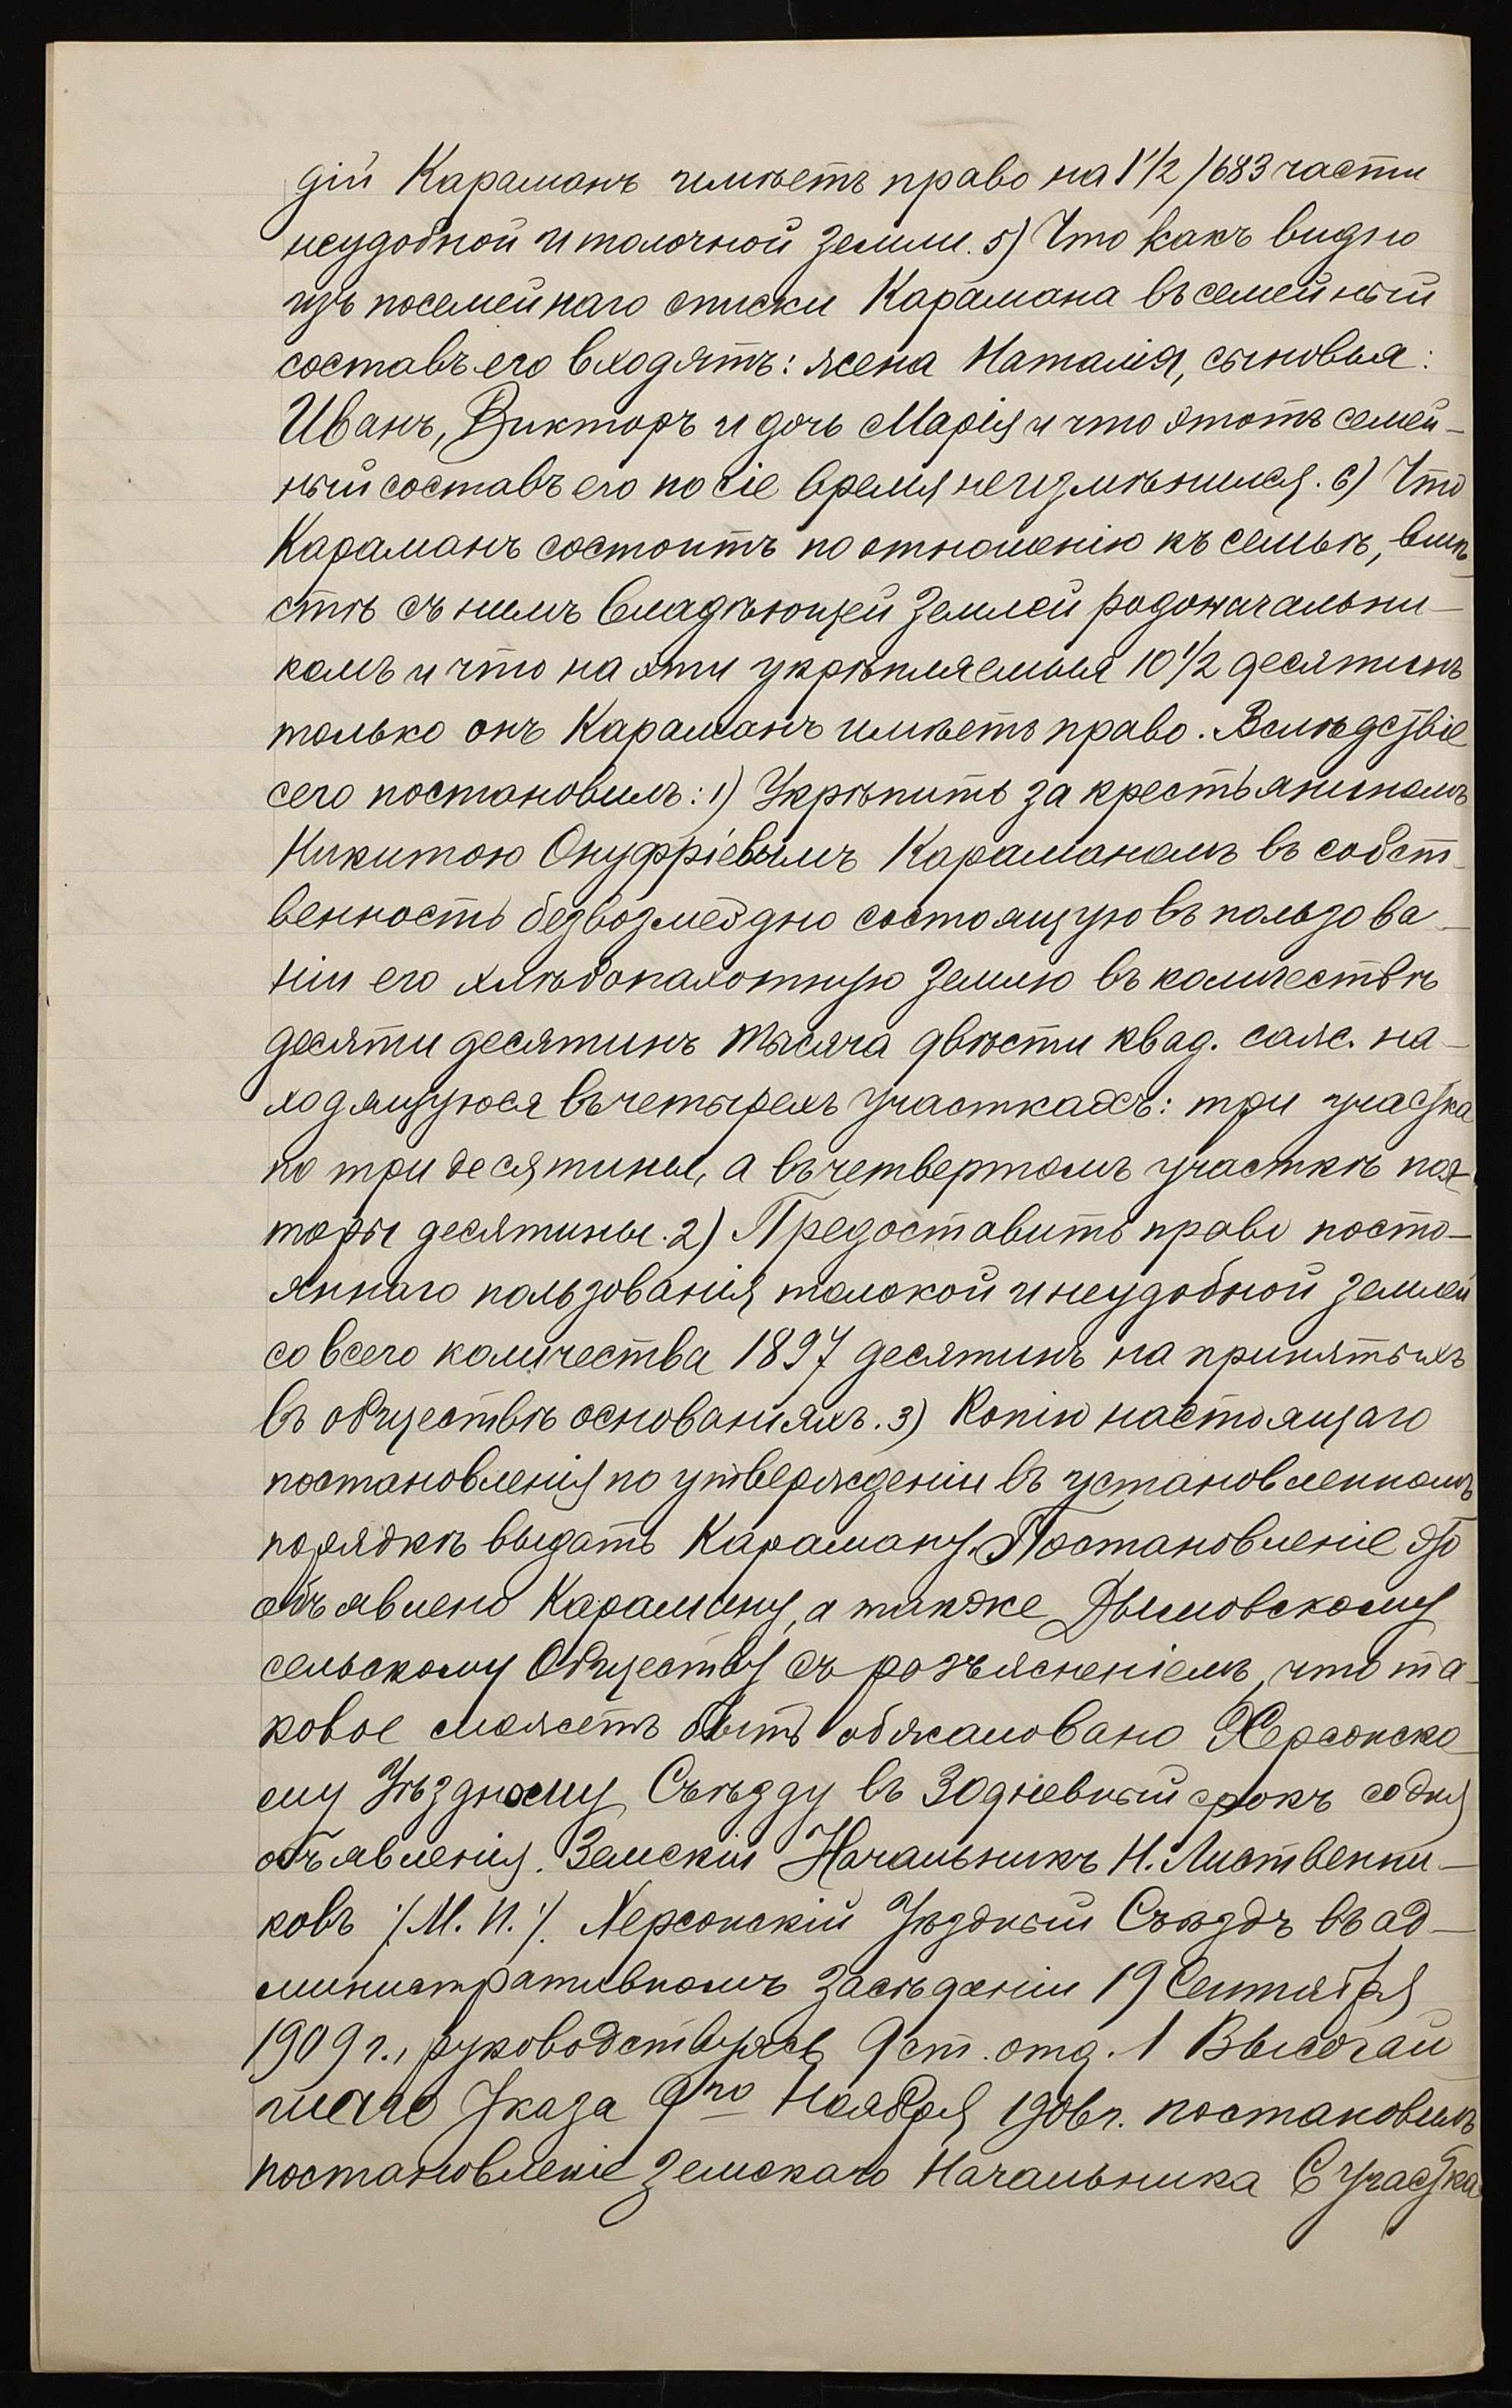 дій Караманъ имѣетъ право на 1 1/2 /683 части
неудобной и толочной земли. 5) Что какъ видно
изъ посемейнаго списки Карамана въ семейный
составъ его входятъ: жена Наталія, сыновья:
Иванъ, Викторъ и дочь Марія и что этотъ семей-
ный составъ его по сіе время неизмѣнился. 6) Что
Караманъ состоитъ по отношенію къ семьѣ, вмѣ-
стѣ съ нимъ владѣющей землей родоначальни-
комъ и что на эти укрѣпляемыя 10 1/2 десятинъ
только онъ Караманъ имѣетъ право. Вслѣдствіе
сего постановилъ: 1) Укрѣпить за крестьяниномъ
Никитою Онуфріевымъ Караманомъ въ собст-
венность безвозмездно состоящую въ пользова-
ніи его хлѣбопахотную землю въ количествѣ
десяти десятинъ тысяча двѣсти квад. саж. на-
ходящуюся въ четырехъ участкахъ: три участка
по три десятины, а въ четвертомъ участкѣ пол-
торы десятины. 2) Предоставить право посто-
яннаго пользованія толокой и неудобной землей
со всего количества 1897 десятинъ на принятыхъ
въ обществѣ основаніяхъ. 3) Копію настоящаго
постановленія по утвержденіи въ установленномъ
порядкѣ выдать Караману. Постановленіе это
объявлено Караману, а также Дымовскому
сельскому Обществу съ разъясненіемъ, что та-
ковое можетъ быть обжаловано Херсонско-
му Уѣздному Съѣзду въ 30 дневный срокъ со дня
объявленія. Земскій Начальникъ Н. Лиственни-
ковъ /М. П./. Херсонскій Уѣздный Съѣздъ въ ад-
министративномъ засѣданіи 19 Сентября
1909 г., руководствуясь 9 ст. отд. 1 Высочай
шаго Указа 9го Ноября 1906 г. постановилъ
постановленіе Земскаго Начальника 6 участка